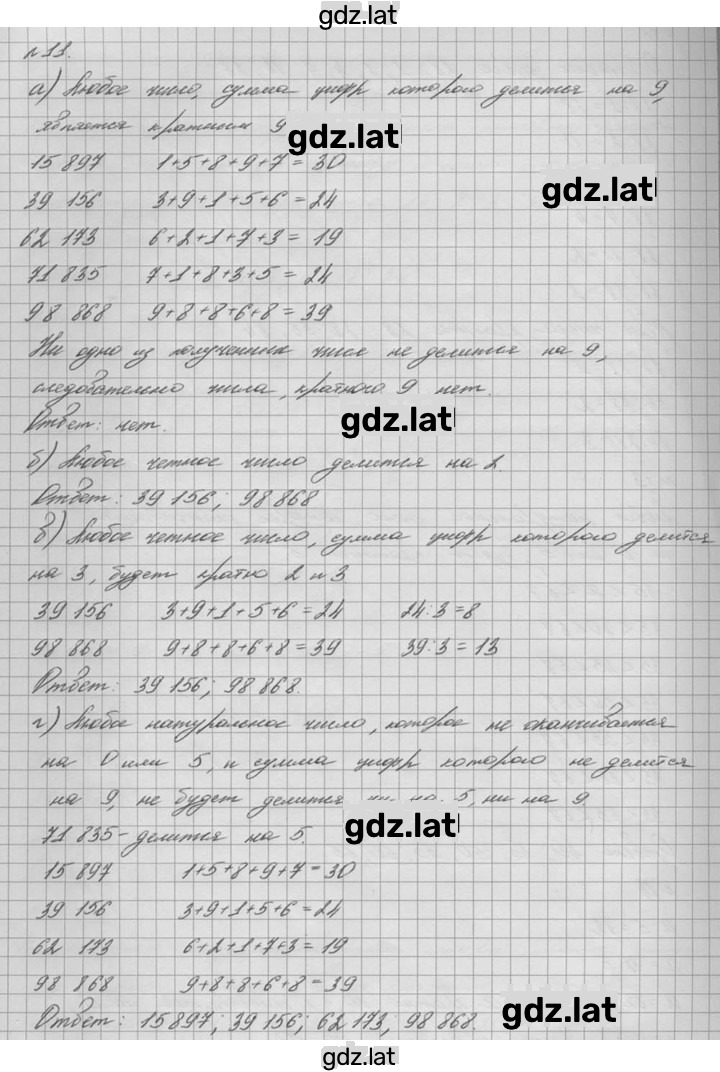 gdz.lat
№11.
а) Любое число, сумма цифр которого делится на 9,
является кратным 9
gdz.lat
15 897 1+5+8+9+7=30
gdz.lat
39 156 3+9+1+5+6=24
62 173 6+2+1+7+3=19
71 835 7+1+8+3+5=24
98 868 9+8+8+6+8=39
Ни одно из полученных чисел не делится на 9,
следовательно числа, кратного 9 нет.
gdz.lat
Ответ: нет.
б) Любое четное число делится на 2.
Ответ: 39 156; 98 868
в) Любое четное число, сумма цифр которого делится
на 3, будет кратно 2 и 3
39 156 3+9+1+5+6=24 24:3=8
98 868 9+8+8+6+8=39 39:3=13
Ответ: 39 156; 98 868.
г) Любое натуральное число, которое не оканчивается
на 0 или 5, и сумма цифр которого не делится
на 9, не будет делится ни на 5, ни на 9.
gdz.lat
71 835 - делится на 5.
15 897 1+5+8+9+7=30
39 156 3+9+1+5+6=24
62 173 6+2+1+7+3=19
98 868 9+8+8+6+8=39
gdz.lat
Ответ: 15 897; 39 156; 62 173; 98 868.
gdz.lat